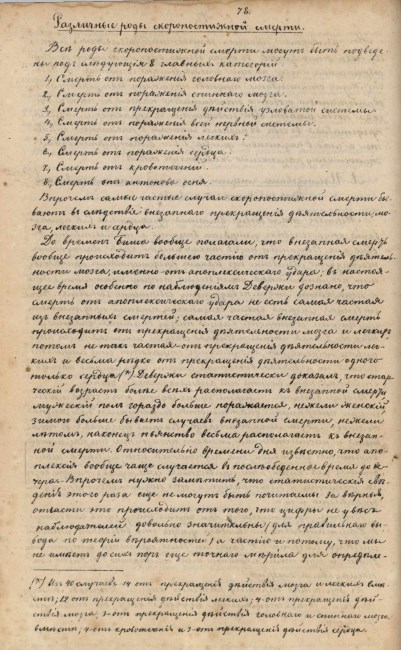 78.
Различные роды скоропостижной смерти.
Всѣ роды скоропостижной смерти могутъ быть подведе-
ны подъ слѣдующія 8 главныхъ категорій
1, Смерть отъ пораженія головнаго мозга.
2, Смерть отъ пораженія спиннаго мозга.
3, Смерть отъ прекращенія дѣйствія узловатой системы
4, Смерть отъ пораженія всей нервной системы.
5, Смерть отъ пораженія легкихъ.
6, Смерть отъ пораженія сердца.
7, Смерть отъ кровотеченій.
8, Смерть отъ антонова огня.
Впрочемъ самые частые случаи скоропостижной смерти бы-
ваютъ вслѣдствіе внезапнаго прекращенія дѣятельности мо-
зга, легкихъ и сердца.
До временъ Биша вообще полагали, что внезапная смерть
вообще происходитъ большею частію отъ прекращенія дѣятель-
ности мозга, именно отъ апоплексическаго удара; въ настоя-
щее время особенно по наблюденіямъ Девержи дознано, что
смерть отъ апоплексическаго удара не есть самая частая
изъ внезапныхъ смертей; самая частая внезапная смерть
происходитъ отъ прекращенія дѣятельности мозга и легкихъ,
потомъ не такъ частая отъ прекращенія дѣятельности лег-
кихъ и весьма рѣдко отъ прекращенія дѣятельности одного
только сердца (*) Девержи статистически доказалъ, что стар-
ческій возрастъ болѣе всѣхъ располагаетъ къ внезапной смерти,
мужескій полъ гораздо больше поражается, нежели женскій
зимою больше бываетъ случаевъ внезапной смерти, нежели
лѣтомъ, наконецъ пьянство весьма располагаетъ къ внезап-
ной смерти. Относительно времени дня извѣстно, что апо-
плексія вообще чаще случается въ послѣобеденное время до ве-
чера. Впрочемъ нужно замѣтить, что статистическія свѣ-
денія этого рода еще не могутъ быть почитаемы за вѣрныя,
отчасти это происходитъ отъ того, что цифры не у всѣхъ
наблюдателей довольно значительны (для правильнаго вы-
вода по теоріи вѣроятностей) а частію и потому, что мы
не имѣемъ до сихъ поръ еще точнаго мѣрила для опредѣле-
(*) Изъ 40 случаевъ отъ прекращенія дѣйствія мозга и легкихъ вмѣ-
стѣ; 12 отъ прекращенія дѣйствія легкихъ; 4-отъ прекращенія дѣй-
ствія мозга, 3-отъ прекращенія дѣйствія головнаго и спиннаго мозга
вмѣстѣ, 4-отъ кровотеченія и 3-отъ прекращенія дѣйствія сердца.